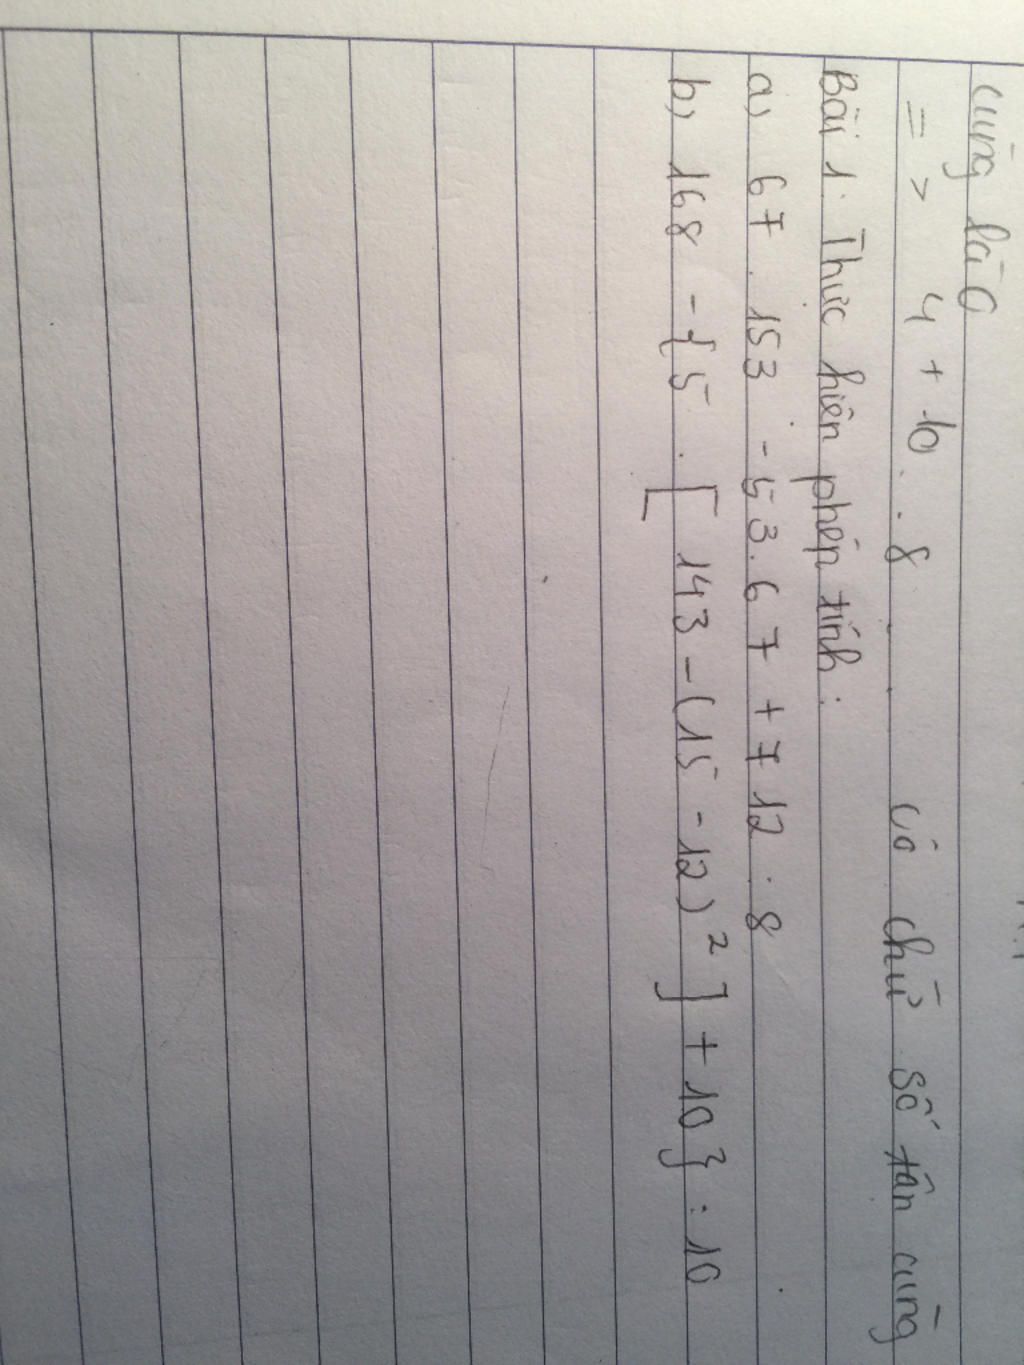 cũng là 0
=> 4 + 10 . 8 . . có chữ số tận cùng
Bài 1. Thực hiện phép tính:
a) 67 . 153 - 53.67 + 712 . 8
b) 168 - {5 . [143 - (15 - 12)²] + 10} : 10